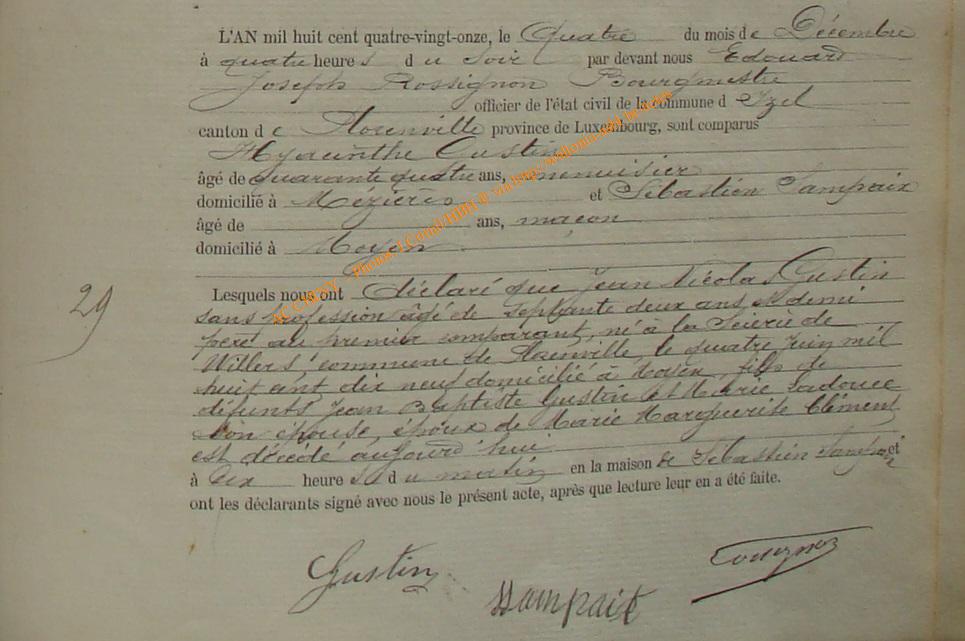 L'AN mil huit cent quatre-vingt-onze, le Quatre du mois de Décembre
à quatre heures du Soir par devant nous Edouard
Joseph Rossignon Bourgmestre
officier de l'état civil de la commune d Izel
canton de Florenville province de Luxembourg, sont comparus
Hyacinthe Gustin
âgé de quarante quatre ans, menuisier
domicilié à Mézières et Sébastien Sampaix
âgé de ans, maçon
domicilié à Moyen
29
Lesquels nous ont déclaré que Jean Nicolas Gustin
sans profession âgé de septante deux ans et demi
père au premier comparant, né à la Scierie de
Willers, commune de Florenville, le quatre Juin mil
huit cent dix neuf domicilié à Moyen, fils de
défunts Jean Baptiste Gustin et Marie Ladouce
son épouse, époux de Marie Marguerite Clément
est décédé aujourd'hui
à dix heures du matin en la maison de Sébastien Sampaix et
ont les déclarants signé avec nous le présent acte, après que lecture leur en a été faite.
Gustin
Sampaix